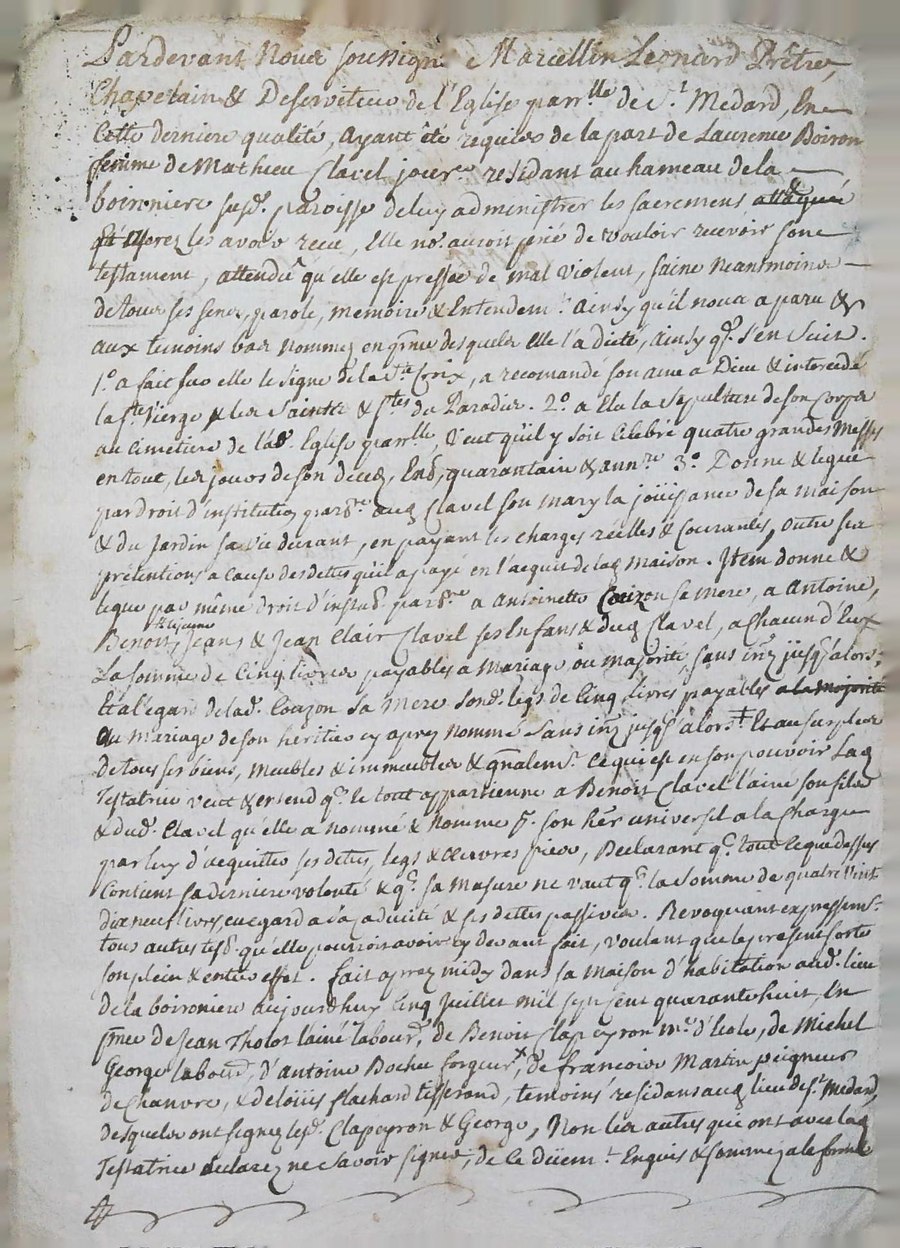 Pardevant Nous soussigné Marcellin Leonard Prêtre,
Chapelain & Deserviteur de l'Eglise parr.lle de S.t Medard, En
Cette derniere qualité, Ayant été requis de la part de Laurence Boiron
femme de Mathieu Clavel jour.r residant au hameau de la
boironniere susd. paroisse de luy administrer les sacremens
les avoir recu, Elle no.s auroit prié de vouloir recevoir son
testament, attendu qu'elle est pressée de mal violent, saine neantmoins
de tous ses sens, parole, memoire & Entendem.t Ainsy qu'il nous a paru &
aux temoins bas nommez en pñce desquels Elle l'a dicté, Ainsy q.e s'en suit.
1.o a fait sur elle le signe de la S.te Croix, a recomandé son ame a Dieu & intercedé
la S.te Vierge & les Saints & S.tes du Paradis. 2.o a Elu la sepulture de son Corps
au Cimetiere de lad Eglise parr.lle, Veut qu'il y soit Celebré quatre grandes Messes
en tout, les jours de son decez, End, quarantain & ann.re 3.o Donne & legue
par droit d'institution par.re aud Clavel son mary la joüissance de sa maison
& du Jardin sa vie durant, en payant les charges réelles & Courantes, outre ses
prétentions a cause des dettes qu'il a payé en l'acquit de lad maison. Item donne &
legue par même droit d'instit. par.re a Antoinette Couzon sa mere, a Antoine,
Benoit le jeune, Jeans & Jean Clair Clavel ses Enfans & dud Clavel, a Chacun d'Eux
La somme de Cinq livres payables a Mariage ou majorité sans int. jusq' alors;
Et a l'egard de lad. Couzon sa mere sond. legs de Cinq Livres payables a la majorité
Au Mariage de son heritier cy aprez nommé sans int. jusq' alors. Et au surplus
de tous ses biens, meubles & immeubles & gñalem.t Ce qui est en son pouvoir Lad
Testatrice veut & entend q.e le tout appartienne a Benoit Clavel l'ainé son fils
& dud. Clavel qu'elle a nommé & Nomme p.r son her. universel a la Charge
par luy d'acquitter ses dettes, legs & Oeuvres pies, Declarant q.e tout ce que dessus
Contient sa derniere volonté & q.e sa Masure ne vaut q.e la Somme de quatre vint
dix neuf livres, eu egard a sa caducité & ses dettes passives. Revoquant expressem.t
tous autres test. qu'elle pourroit avoir cy devant fait, voulant que le present sorte
son plein & entier effet. fait aprez midy dans sa maison d'habitation aud. lieu
de la boironiere aujourdhuy Cinq Juillet mil sept cent quarante huit, En
pñce de Jean Tholot l'ainé labour.r, de Benoit Clapeyron M.e d'Ecole, de Michel
George labour.r, d'Antoine Bochu forgeur, de francois Martin peigneur
de Chanvre, & de loüis flachard tisserand, temoins residans aud lieu de S.t Medard,
desquels ont signez lesd. Clapeyron & George, Non les autres qui ont avec lad
Testatrice declarez ne savoir signer, de ce düem.t Enquis & sommez a la forme